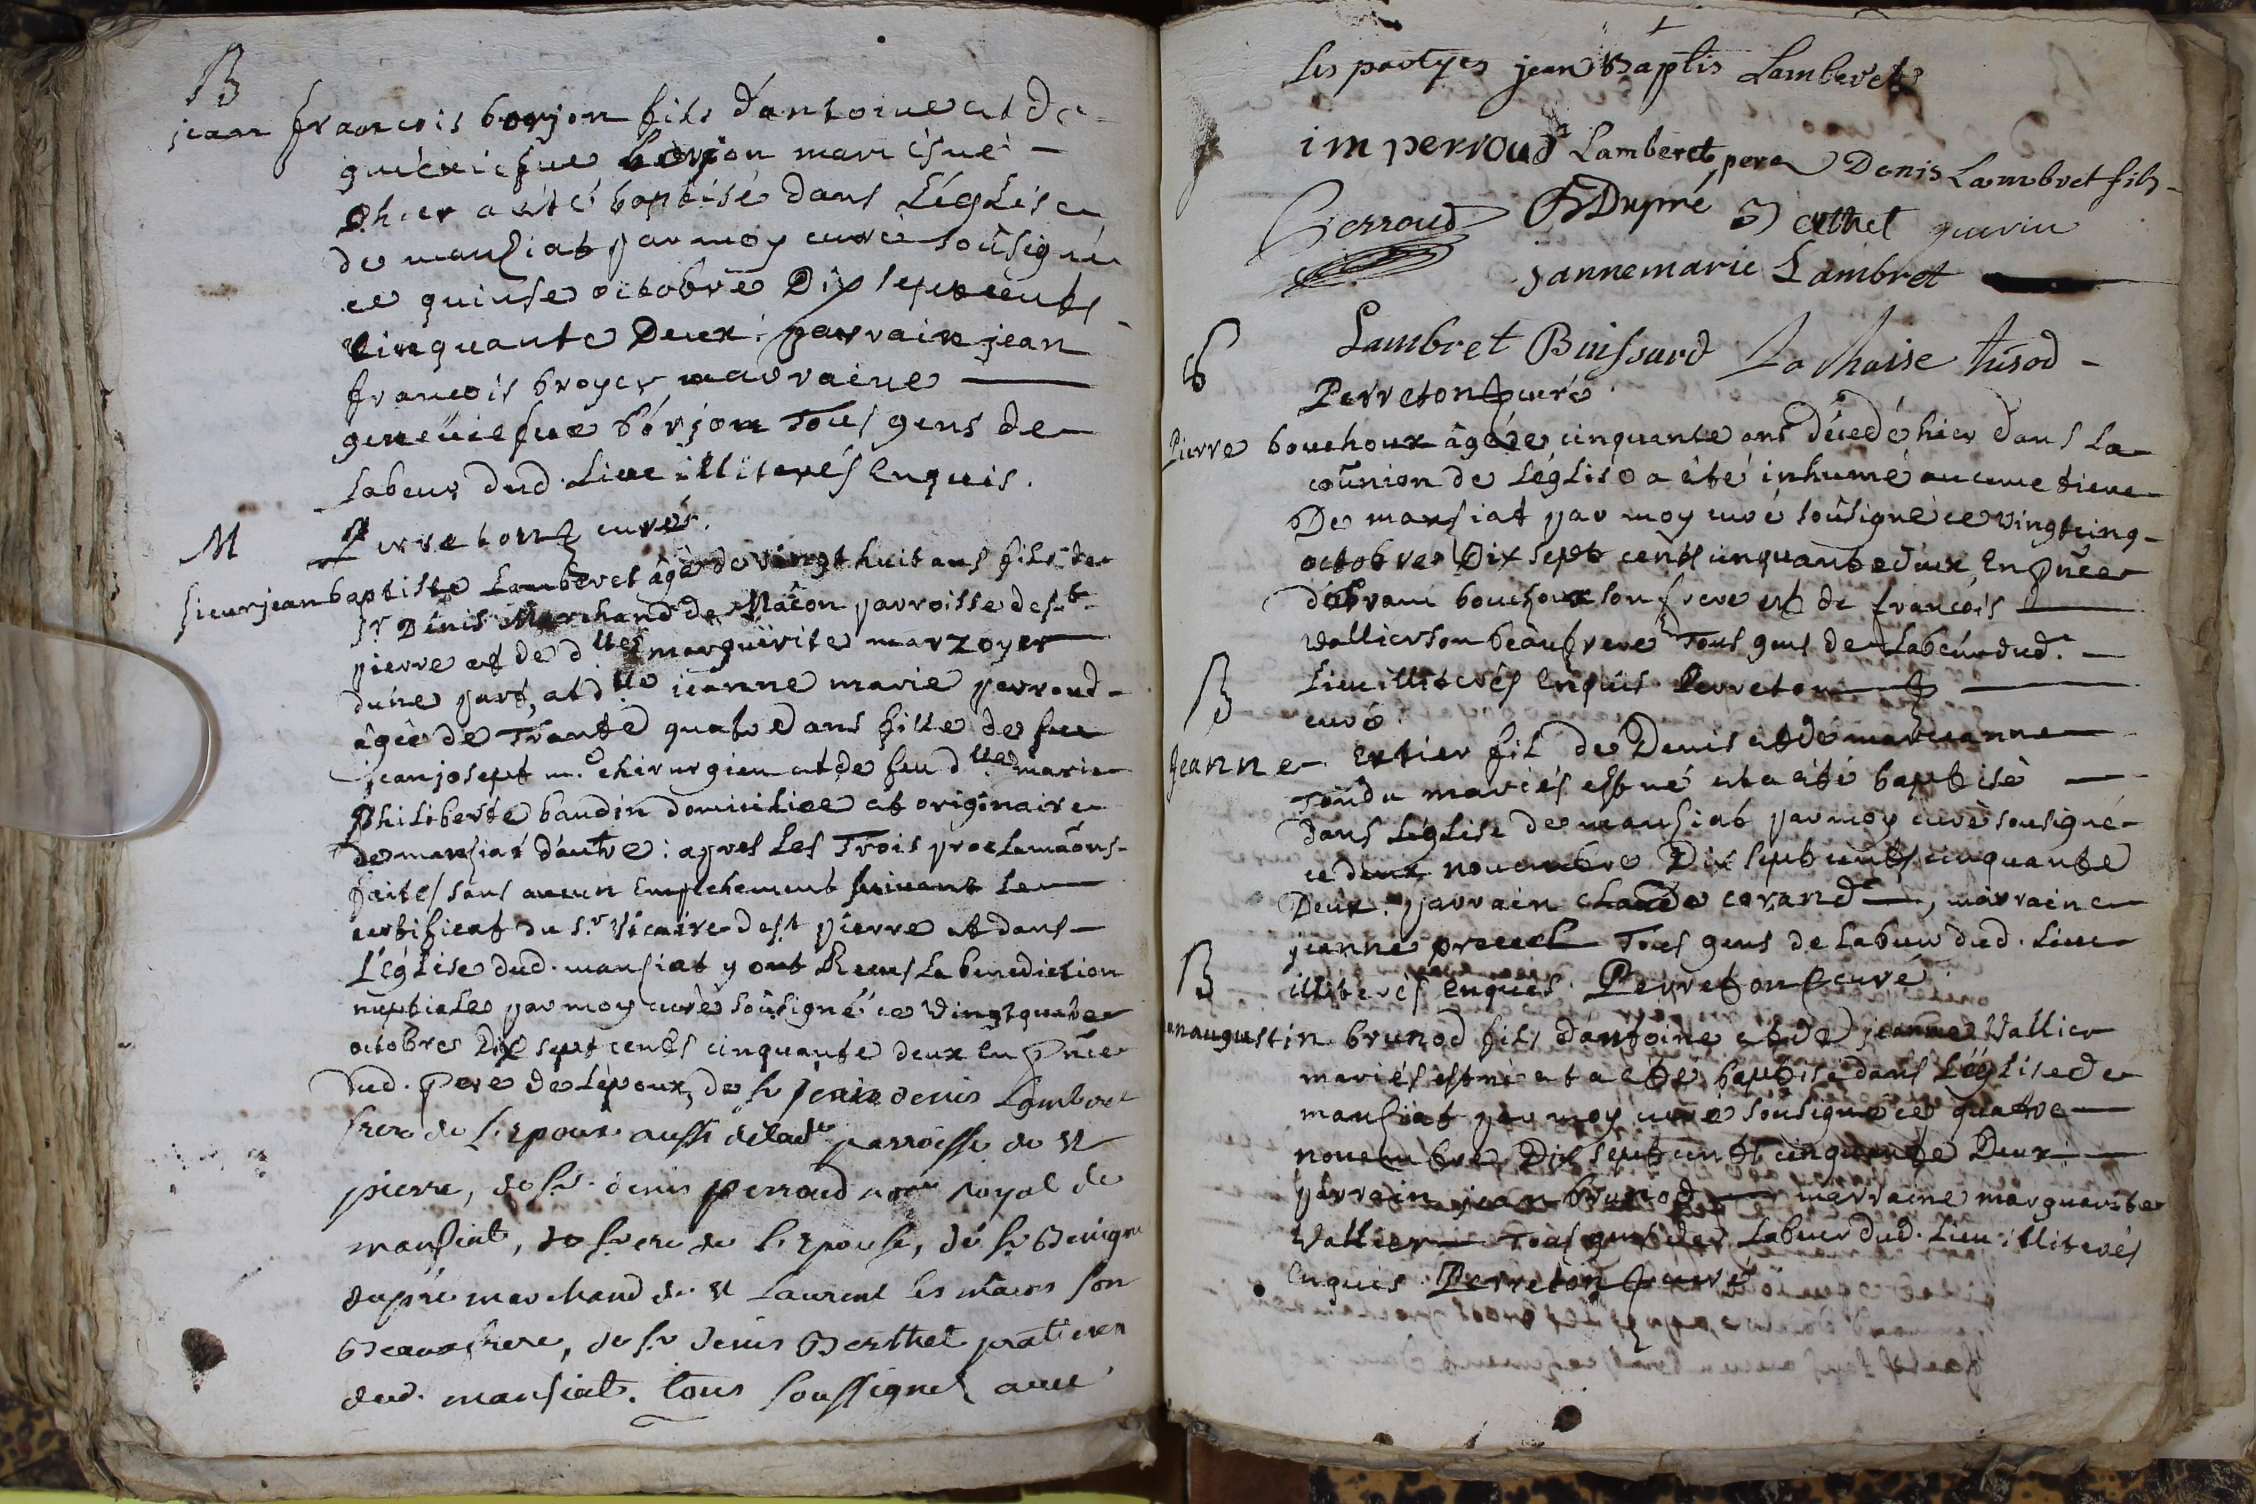 B
jean francois borjon fils d'antoine et de
gueniefue borjon mari és né
hier a été baptisé dans L'égLise
de mansiat par moy curé soûsigné
ce quinse octobre Dix sept cents
cinquante Deux: parrain jean
francois broyer marraine
geneuiefue borjon Tous gens de
Labeur dud. Lieu illiterés Enquis.
Perreton curé.
M
sieur jean baptiste Lamberet âgé de vingt huit ans fils de
sr Dénis Marchand de Mâcon parroisse de st
pierre et de dlle marguerite marzoyer
d'une part, et dlle jeanne marie perroud
âgée de Trante quatre ans fille de feu
jean josept me chirurgien et de feu dlle marie
philiberte baudin domiciliée et originaire
de mansiat d'autre: apres Les Trois proclamaõns
faites sans aucun Empechement suivant Le
certificat du sr Vicaire de st pierre et dans
L'égLise dud. mansiat y ont Reçus La benediction
nuptiale par moy curé soûsigné ce vingt quatre
octobre Dix sept cents cinquante deux En pñce
dud. Pere de L'époux, de sr denis Lambret
frere de L'Epoux aussi de lade parroisse de st
pierre, de sr denis perroud nore royal de
mansiat, frere de L'Epouse, de sr Benigne
dupré marchand de st Laurent les mâcon son
Beaufrere, de sr denis Berthet praticien
dud. mansiat. tous soussignés avec
Les partyes jean Baptis Lamberet
im perroud Lamberet pere Denis Lambret fils
Perroud BDupré Berthet guerin
jannemarie Lambret
Lambret Buissard La Chaise
Perreton curé
S
Pierre bouchoux âgé de cinquante ans décedé hier dans La
coũnion de L'égLise a été inhumé au cimetiere
De mansiat par moy curé soûsigné ce vingt cinq
octobre Dix sept cents cinquante deux En pñce
d'abram bouchoux son frere et de francois
vallier son beaufrere Tous gens de Labeur dud.
Lieu illiterés Enquis Perreton
curé.
B
jeanne Ertier fil de Denis et de marieanne
Tondu mariés est né et a été baptisé
dans L'égLise de mansiat par moy curé sousigné
ce deux novembre Dix sept cents cinquante
Deux. parrain cLaude corand, marraine
jeanne preuel Tous gens de Labeur dud. Lieu
illiterés Enquis. Perreton curé.
B
augustin brunod fils d'antoine et de jeanne Vallier
mariés est né et a été baptisé dans L'égLise de
mansiat par moy curé sousigné ce quatre
novembre Dix sept cents cinquante Deux
parrain jean brunod marraine marguerite
Vallier Tous gens de Labeur dud. Lieu illiterés
Enquis Perreton curé